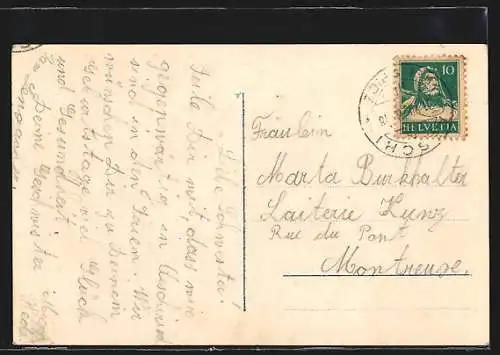 Liebe Schwester!
Teile Dir mit, dass wir
gegenwärtig in Aeschiried
sind in den Ferien. Wir
wünschen Dir zu Deinem
Geburtstage viel Glück
und Gesundheit.
Deine Geschwister
10
HELVETIA
Fräulein
Marta Burkhalter
Laiterie Kunz
Rue du Pont
Montreux.